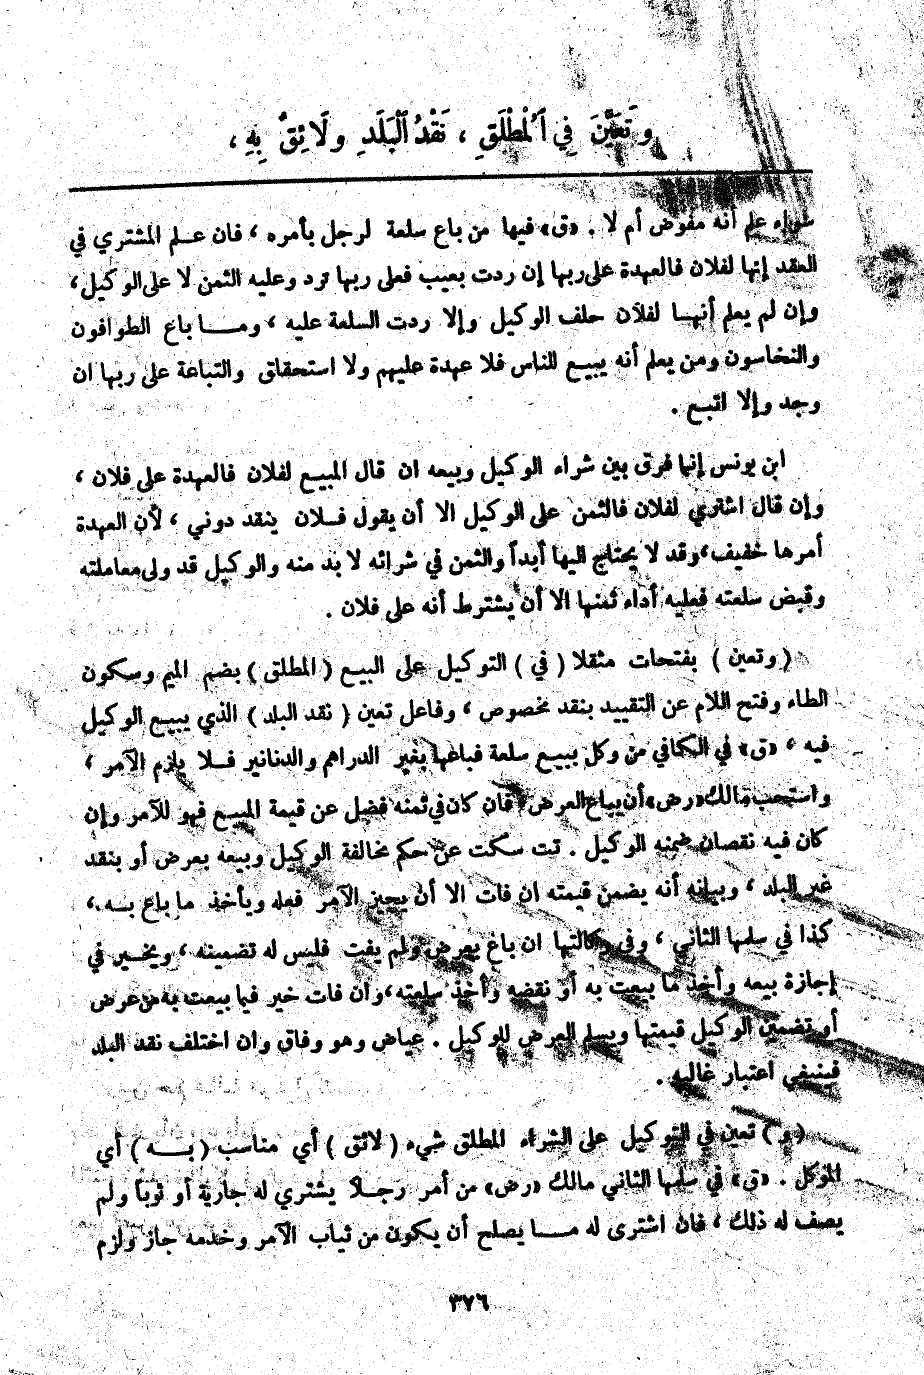 وَتَعَيَّنَ فِي ٱلْمُطْلَقِ ، نَقْدُ ٱلْبَلَدِ ولَائِقٌ بِهِ ،
سواء علم أنه مفوض أم لا . «ق» فيها من باع سلعة لرجل بأمره ، فان علم المشتري في
العقد إنها لفلان فالعهدة على ربها إن ردت بعيب فعلى ربها ترد وعليه الثمن لا على الوكيل ،
وإن لم يعلم أنها لفلان حلف الوكيل وإلا ردت السلعة عليه ، وما باع الطوافون
والنخاسون ومن يعلم أنه يبيع للناس فلا عهدة عليهم ولا استحقاق والتباعة على ربها ان
وجد وإلا اتبع .
ابن يونس إنما فرق بين شراء الوكيل وبيعه ان قال المبيع لفلان فالعهدة على فلان ،
وإن قال اشتري لفلان فالثمن على الوكيل الا أن يقول فلان ينقد دوني ، لأن العهدة
أمرها خفيف ، وقد لا يحتاج اليها أبداً والثمن في شرائه لا بد منه والوكيل قد ولى معاملته
وقبض سلعته فعليه أداء ثمنها الا أن يشترط أنه على فلان .
( وتعين ) بفتحات مثقلا ( في ) التوكيل على البيع ( المطلق ) بضم الميم وسكون
الطاء وفتح اللام عن التقييد بنقد مخصوص ، وفاعل تعين ( نقد البلد ) الذي يبيع الوكيل
فيه ، «ق» في الكافي من وكل ببيع سلعة فباعها بغير الدراهم والدنانير فلا يلزم الآمر ،
واستحب مالك «رض» أن يباع العرض ، فان كان في ثمنه فضل عن قيمة المبيع فهو للآمر وإن
كان فيه نقصان ضمنه الوكيل . تت سكت عن حكم مخالفة الوكيل وبيعه بعرض أو بنقد
غير البلد ، وبيانه أنه يضمن قيمته ان فات الا أن يجيز الآمر فعله ويأخذ ما باع به ،
كذا في سلمها الثاني ، وفي وكالتها ان باع بعرض ولم يفت فليس له تضمينه ، ويخير في
إجازة بيعه وأخذ ما بيعت به أو نقضه وأخذ سلعته ، وان فات خير فيما بيعت به من عرض
أو تضمين الوكيل قيمتها ويسلم العرض للوكيل . عياض وهو وفاق وان اختلف نقد البلد
فينبغي اعتبار غالبه .
( و ) تعين في التوكيل على الشراء المطلق شيء ( لائق ) أي مناسب ( به ) أي
الموكل . «ق» في سلمها الثاني مالك «رض» من أمر رجلاً يشتري له جارية أو ثوباً ولم
يصف له ذلك ، فان اشترى له ما يصلح أن يكون من ثياب الآمر وخدمه جاز ولزم
٣٧٦